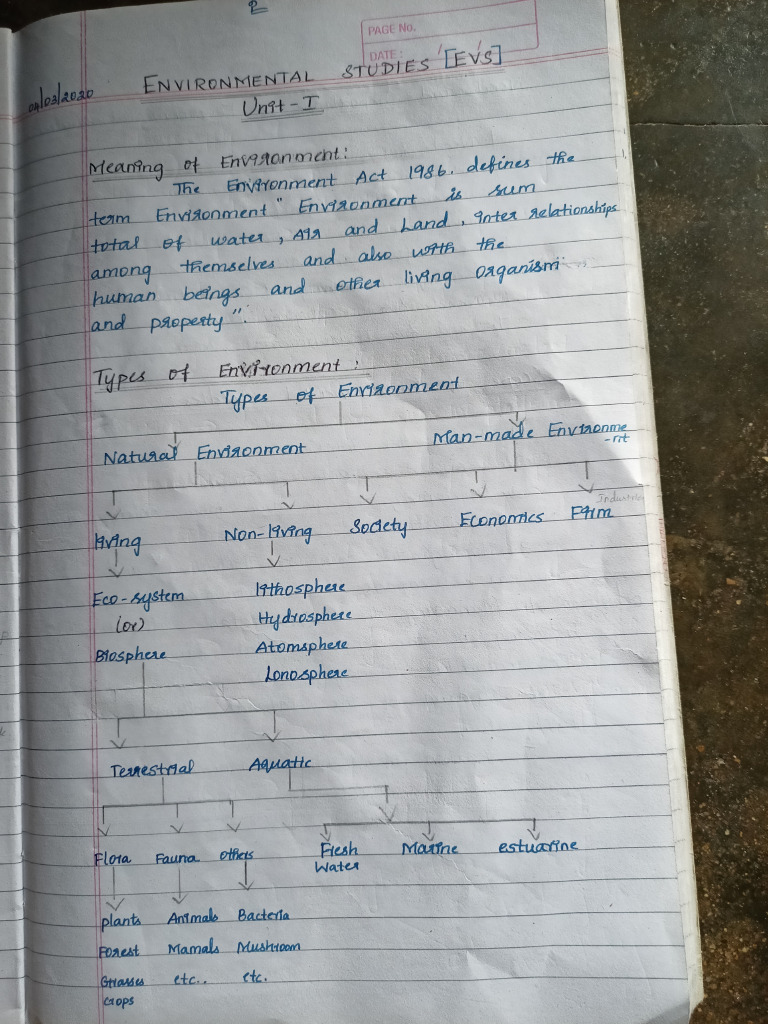 2
PAGE No.
DATE:
04/03/2020
ENVIRONMENTAL STUDIES [EVS]
Unit-I
Meaning of Environment:
The Environment Act 1986. defines the
term Environment " Environment is sum
total of water, Air and Land, inter relationships
among themselves and also with the
human beings and other living organism
and property".
Types of Environment:
Types of Environment
Natural Environment Man-made Environme
-nt
living Non-living Society Economics Firm
Eco-system lithosphere
(or) Hydrosphere
Biosphere Atomsphere
Lonosphere
Terrestrial Aquatic
Flora Fauna others Fresh Marine estuarine
Water
plants Animals Bacteria
Forest Mamals Mushroom
Grasses etc.. etc.
crops